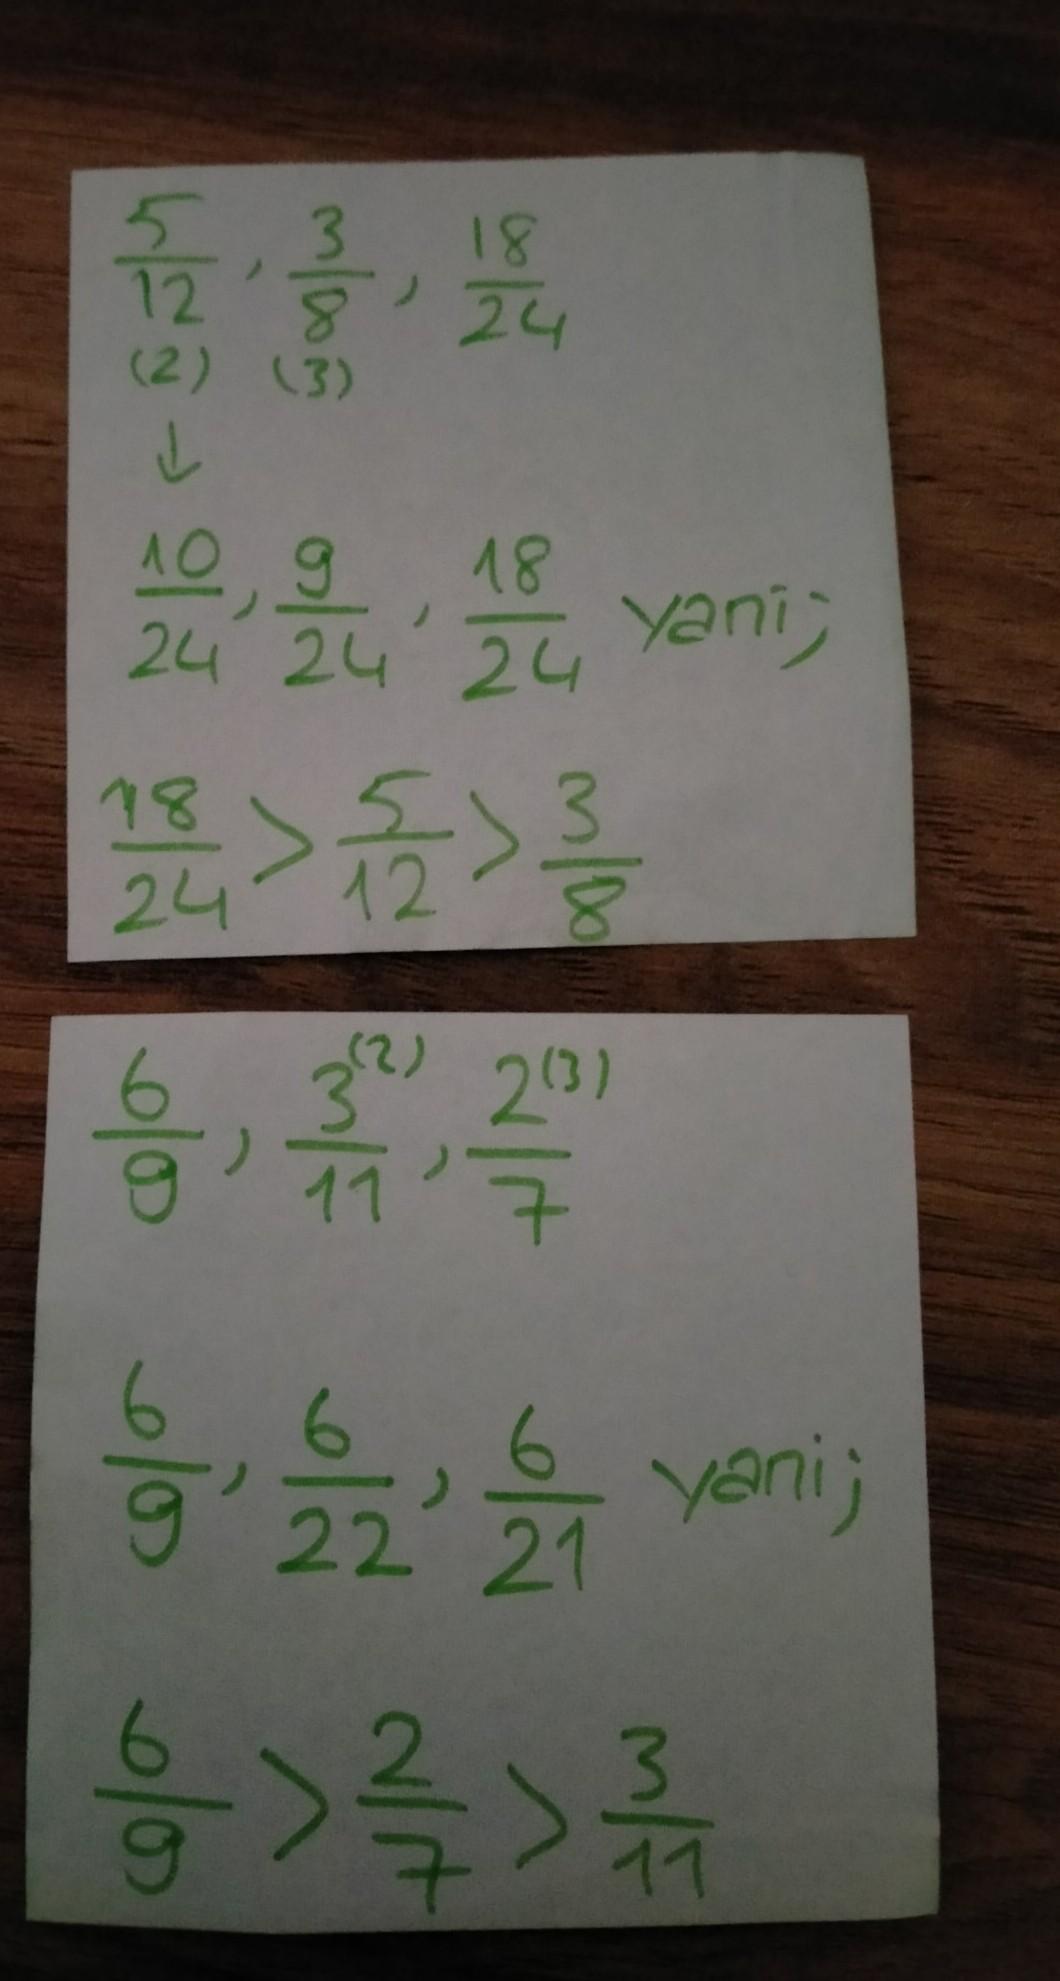 5/12, 3/8, 18/24
(2) (3)
↓
10/24, 9/24, 18/24 yani;
18/24 > 5/12 > 3/8
6/9, 3(2)/11, 2(3)/7
6/9, 6/22, 6/21 yani;
6/9 > 2/7 > 3/11